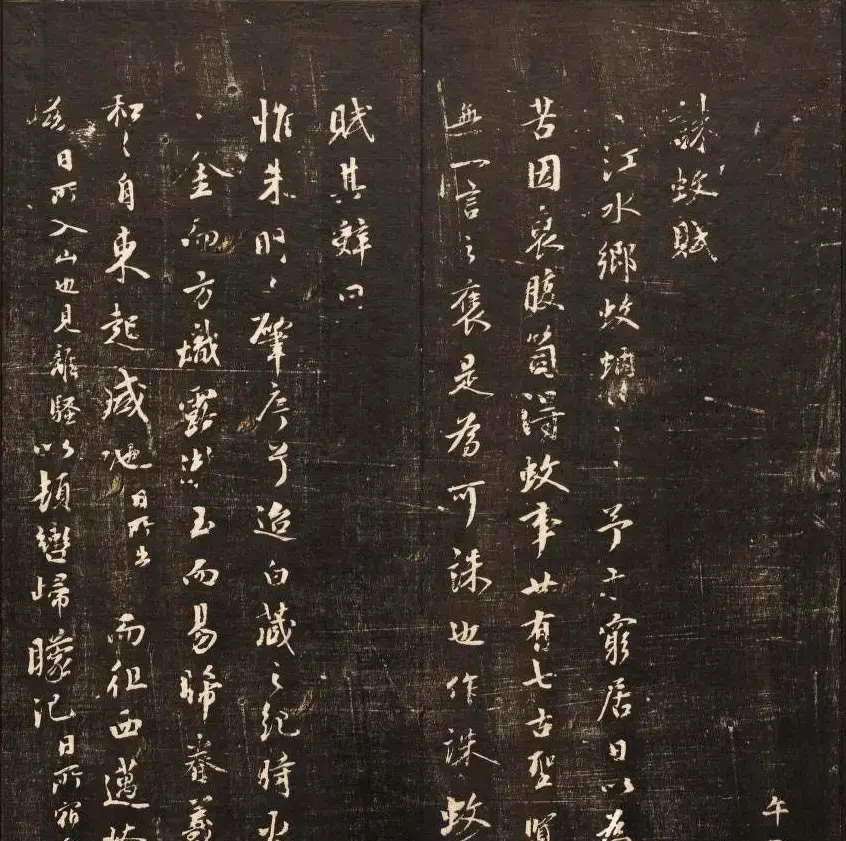 午
誅蚊賦
江水鄉蚊蚋予其窮居日以為
苦因裒腹笥得蚊事廿有七古聖賢
無一言之褒是為可誅也作誅蚊
賦其辭曰
惟朱明之肇序兮迨白藏之紀時火
金而方熾露漙玉而易晞眷羲
和之自東起咸池日所出而徂西邁崦
嵫日所入山也見離騷以頓轡歸朦汜日所宿